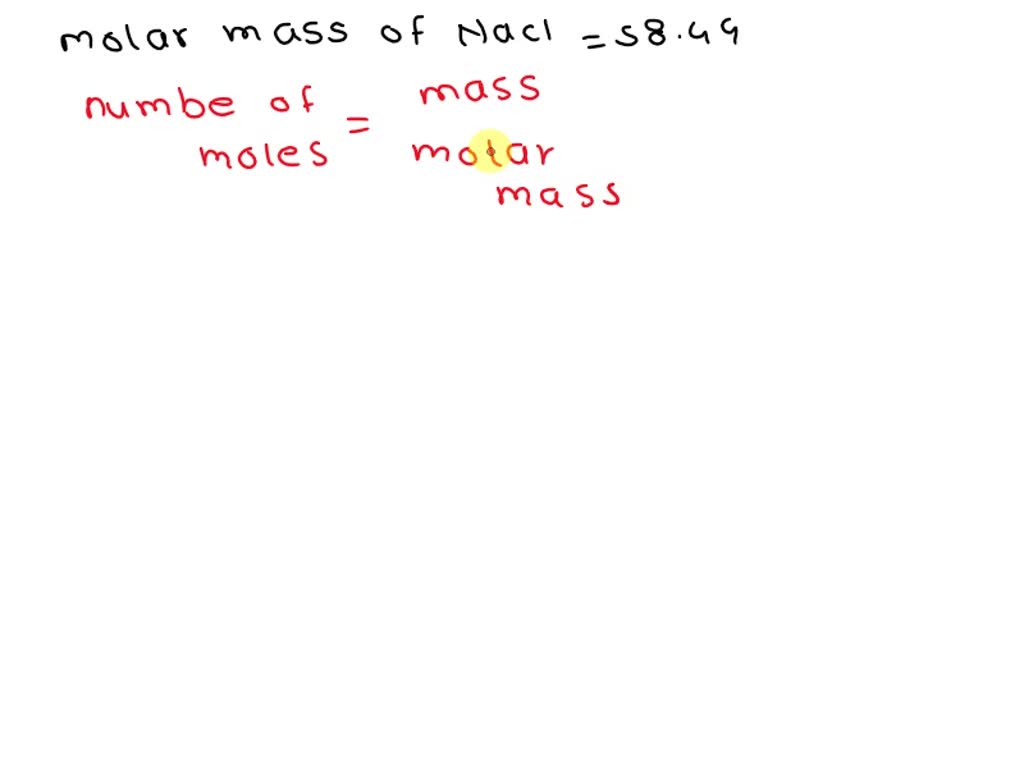 molar mass of Nacl = 58.44
numbe of moles = mass
molar mass